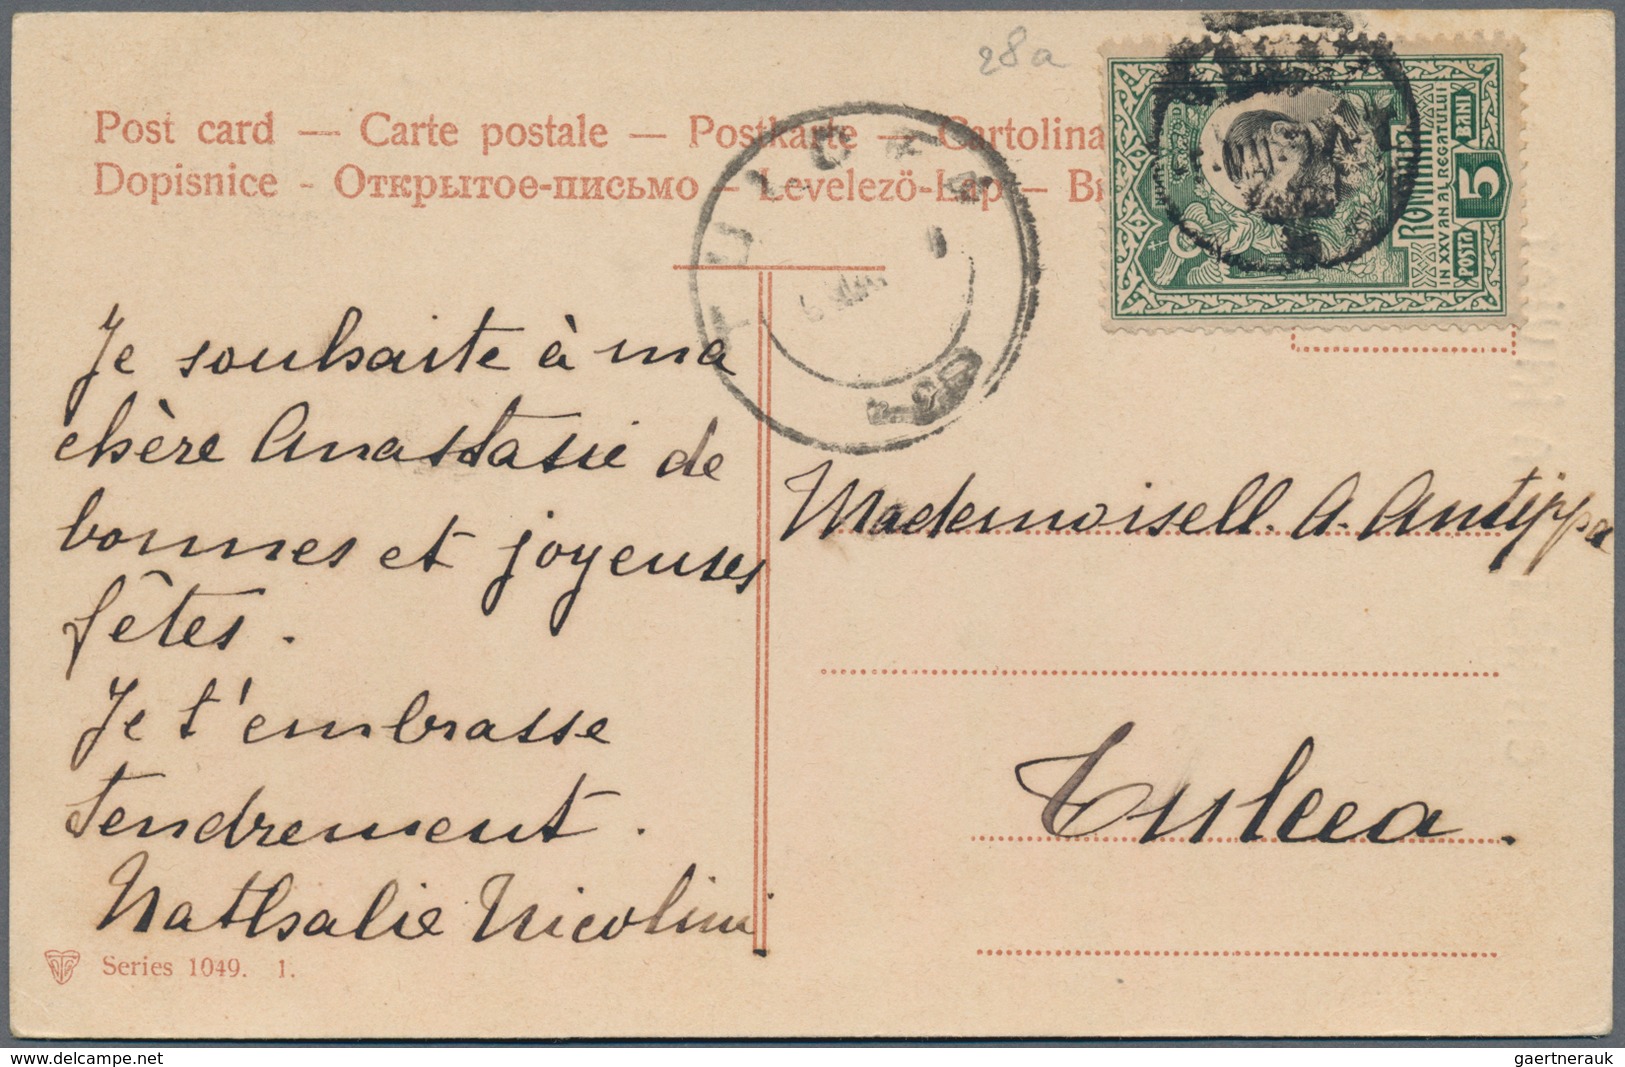 28a
Post card — Carte postale — Postkarte — Cartolina
Dopisnice - Открытое-письмо — Levelezö-Lap —
ROMINIA
IN XXV AN AL REGATULUI
POSTA 5 BANI
TULCEA
Je souhaite à ma
chère Anastasie de
bonnes et joyeuses
fêtes.
Je t'embrasse
tendrement.
Nathalie Nicolini
Mademoisell. A. Antippa
Tulcea.
Series 1049. 1.
delcampe.net
gaertnerauk